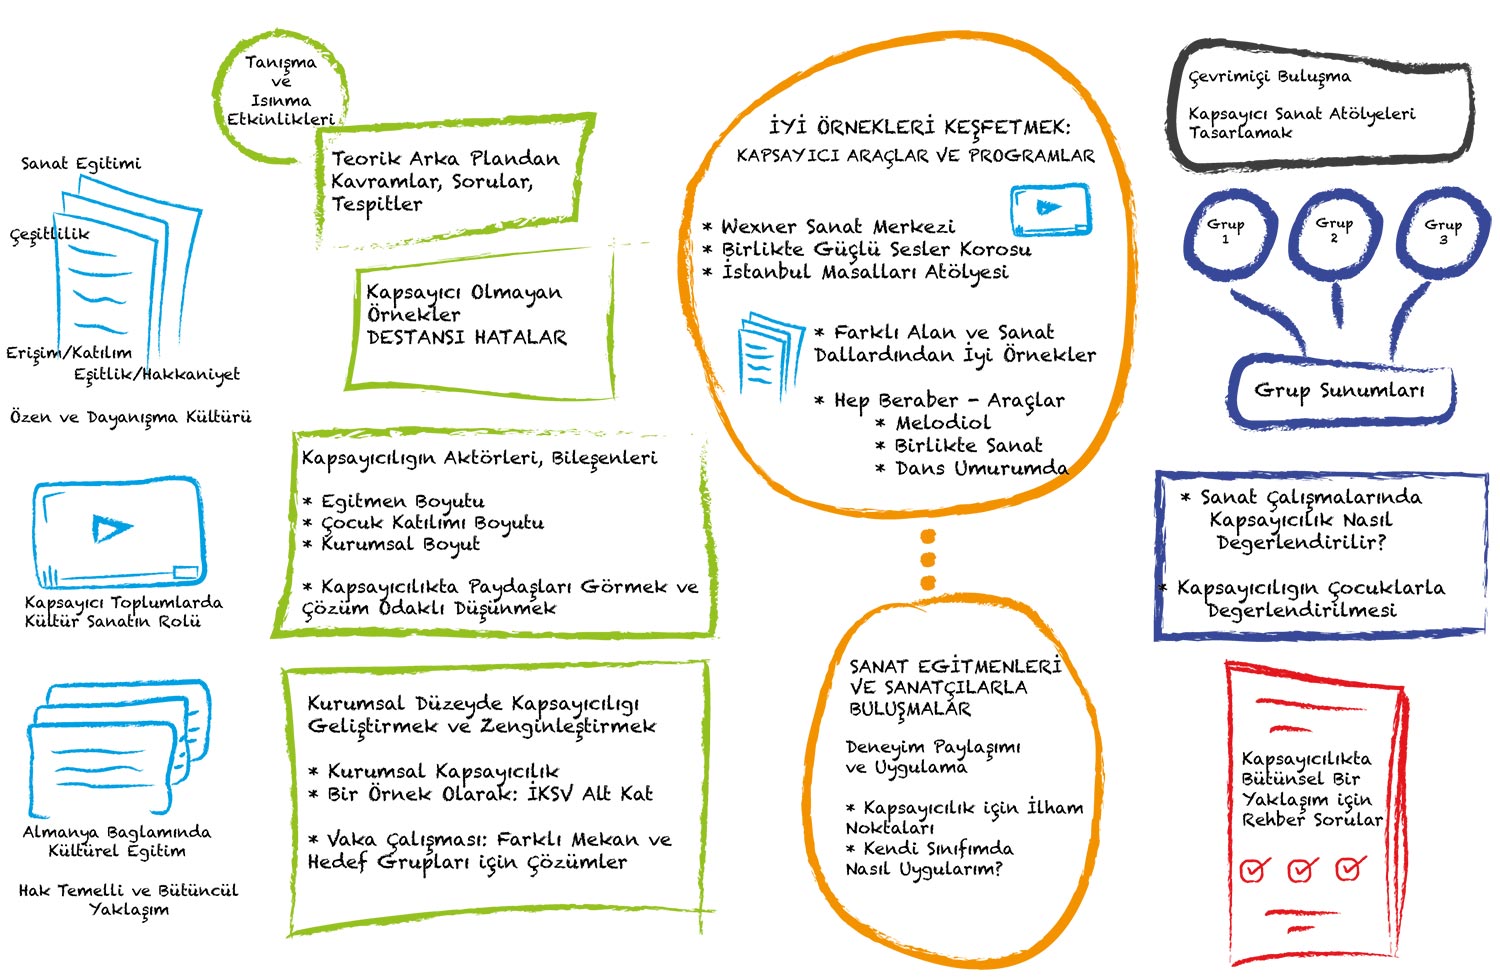 Sanat Egitimi
Çeşitlilik
Erişim/Katılım
Eşitlik/Hakkaniyet
Özen ve Dayanışma Kültürü
Kapsayıcı Toplumlarda
Kültür Sanatın Rolü
Almanya Baglamında
Kültürel Egitim
Hak Temelli ve Bütüncül
Yaklaşım
Tanışma
ve
Isınma
Etkinlikleri
Teorik Arka Plandan
Kavramlar, Sorular,
Tespitler
Kapsayıcı Olmayan
Örnekler
DESTANSI HATALAR
Kapsayıcılıgın Aktörleri, Bileşenleri
* Egitmen Boyutu
* Çocuk Katılımı Boyutu
* Kurumsal Boyut
* Kapsayıcılıkta Paydaşları Görmek ve
Çözüm Odaklı Düşünmek
Kurumsal Düzeyde Kapsayıcılıgı
Geliştirmek ve Zenginleştirmek
* Kurumsal Kapsayıcılık
* Bir Örnek Olarak: İKSV Alt Kat
* Vaka Çalışması: Farklı Mekan ve
Hedef Grupları için Çözümler
İYİ ÖRNEKLERİ KEŞFETMEK:
KAPSAYICI ARAÇLAR VE PROGRAMLAR
* Wexner Sanat Merkezi
* Birlikte Güçlü Sesler Korosu
* İstanbul Masalları Atölyesi
* Farklı Alan ve Sanat
Dallardından İyi Örnekler
* Hep Beraber - Araçlar
* Melodiol
* Birlikte Sanat
* Dans Umurumda
SANAT EGİTMENLERİ
VE SANATÇILARLA
BULUŞMALAR
Deneyim Paylaşımı
ve Uygulama
* Kapsayıcılık için İlham
Noktaları
* Kendi Sınıfımda
Nasıl Uygularım?
Çevrimiçi Buluşma
Kapsayıcı Sanat Atölyeleri
Tasarlamak
Grup
1
Grup
2
Grup
3
Grup Sunumları
* Sanat Çalışmalarında
Kapsayıcılık Nasıl
Degerlendirilir?
* Kapsayıcılıgın Çocuklarla
Degerlendirilmesi
Kapsayıcılıkta
Bütünsel Bir
Yaklaşım için
Rehber Sorular